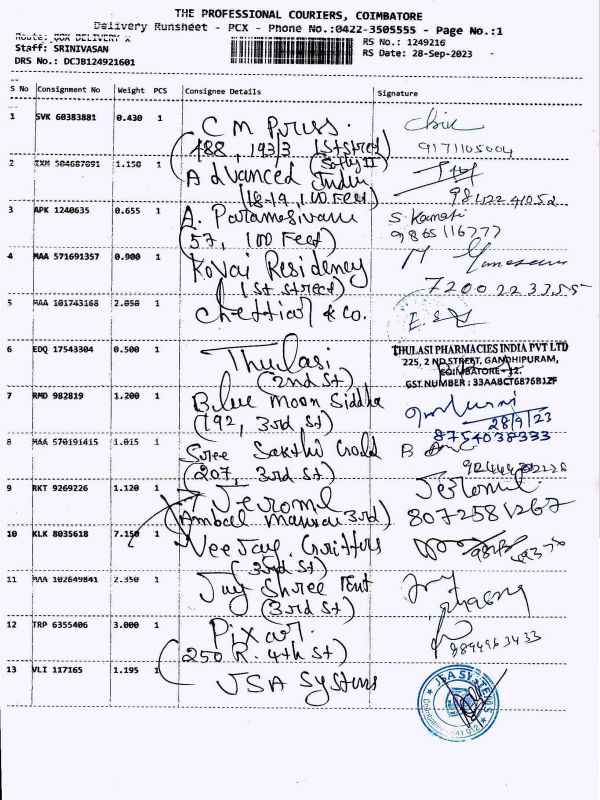 THE PROFESSIONAL COURIERS, COIMBATORE
Delivery Runsheet - PCX - Phone No.:0422-3505555 - Page No.:1
Route: BOX DELIVERY X
Staff: SRINIVASAN
DRS No.: DCJB124921601
RS No.: 1249216
RS Date: 28-Sep-2023
S No Consignment No Weight PCS Consignee Details Signature
1 SVK 60383881 0.430 1 C M Press.
(488, 193/3 1st Street
9171105004
2 IXM 504687091 1.150 1 Advanced
(18-19, 100 Feet)
3 APK 1240635 0.655 1 A. Paramesivam S Kamati
(57, 100 Feet) 9865116777
4 MAA 571691357 0.900 1 Kovai Residency
(1st street) 7200223355
5 MAA 101743168 2.050 1 Chettiar & Co.
6 EDQ 17543304 0.500 1 Thulasi
(2nd St)
THULASI PHARMACIES INDIA PVT LTD
225, 2 ND STREET, GANDHIPURAM,
COIMBATORE - 12.
GST NUMBER : 33AABCT6876B1ZF
7 RMD 982819 1.200 1 Blue Moon Siddha
(192, 3rd St) 28/9/23
8754038333
8 MAA 570191415 1.015 1 Sree Sakthi
(207, 3rd St)
9 RKT 9269226 1.120 1 Jeromil Jeromil
(Ambal Mansion 3rd) 8072581267
10 KLK 8035618 7.150 1 Vee Jay
(3rd St)
11 MAA 102649841 2.350 1 Jay Shree Tent
(3rd St)
12 TRP 6355406 3.000 1 Pixar.
(250 R. 4th St) 9894963433
13 VLI 117165 1.195 1 JSA Systems
JSA SYSTEMS